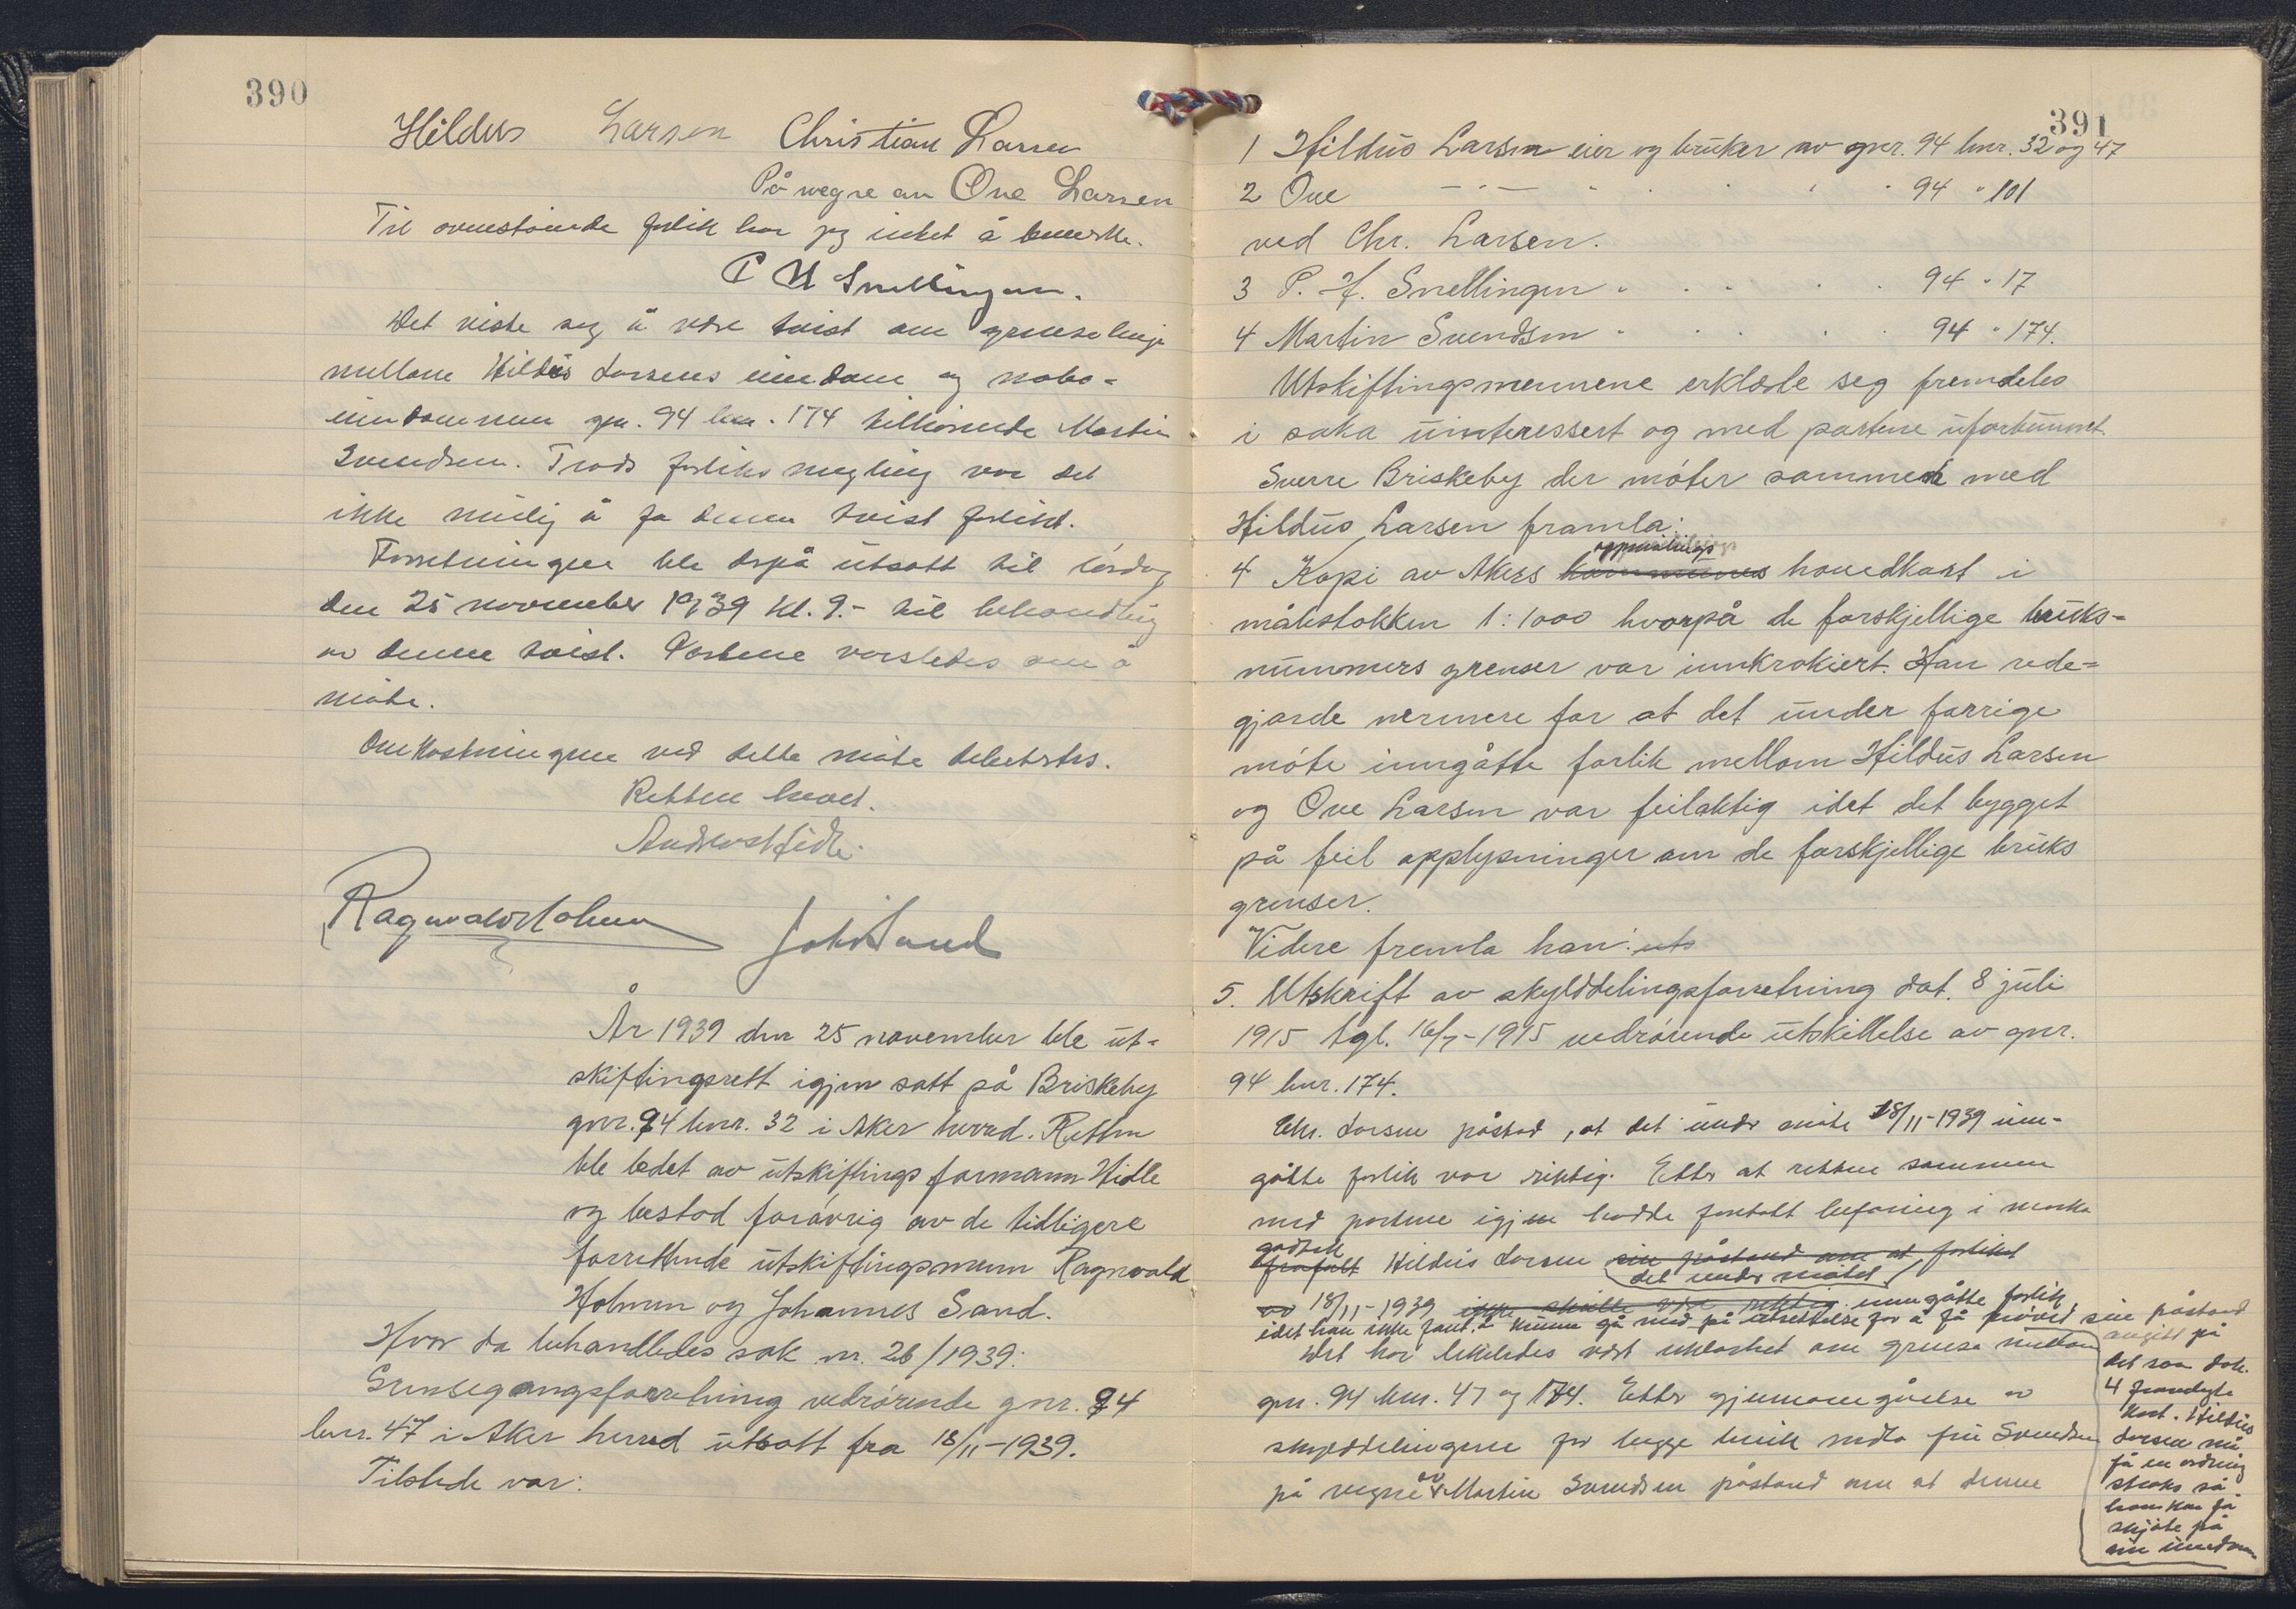 390
Hildus Larsen Christian Larsen
På vegne av Ove Larsen
Til ovenstående forlik har jeg intet å bemerke.
P H Snellingen.
Det viste seg å være tvist om grenselinje
mellom Hildus Larsens eiendom og nabo-
eiendommen gnr. 94 bnr. 174 tilhørende Martin
Svendsen. Trods forliksmegling var det
ikke mulig å få denne tvist forlikt.
Forretningen ble derpå utsatt til lørdag
den 25 november 1939 kl. 9.- til behandling
av denne tvist. Partene varsledes om å
møte.
Omkostningene ved dette møte
Retten hevet.
Ragnvald Holmen
Joh. Sand
År 1939 den 25 november ble ut-
skiftingsrett igjen satt på Briskeby
gnr. 94 bnr. 32 i Aker herred. Retten
ble ledet av utskiftingsformann Hidle
og bestod forøvrig av de tidligere
forrettende utskiftingsmenn Ragnvald
Holmen og Johannes Sand.
Hvor da behandledes sak nr. 26/1939:
Grensegangsforretning vedrørende gnr. 94
bnr. 47 i Aker herred utsatt fra 18/11-1939.
Tilstede var:
391
1 Hildus Larsen eier og bruker av gnr. 94 bnr. 32 og 47
2 Ove — " — " " " " 94 " 101
ved Chr. Larsen.
3 P. H. Snellingen " " " " " 94 " 17
4 Martin Svendsen " " " " " 94 " 174.
Utskiftingsmennene erklærte seg fremdeles
i saka uinteressert og med partene ufortunnet.
Sverre Briskeby der møter sammen med
Hildus Larsen framla:
oppmålings
4 Kopi av Akers kommunes hovedkart i
målestokken 1:1000 hvorpå de forskjellige bruks-
nummers grenser var innkrokiert. Han rede-
gjorde nermere for at det under forrige
møte inngåtte forlik mellom Hildus Larsen
og Ove Larsen var feilaktig idet det bygget
på feil opplysninger om de forskjellige bruks
grenser.
Videre fremla han: uts
5. Utskrift av skylddelingsforretning dat. 8 juli
1915 tgl. 16/7-1915 vedrørende utskillelse av gnr.
94 bnr. 174.
Chr. Larsen påstod, at det under møte 18/11-1939 inn-
gåtte forlik var riktig. Etter at retten sammen
med partene igjen hadde foretatt befaring i marka
godtok
frafalt Hildus Larsen sin påstand om at forliket
det under møtet
av 18/11-1939 ikke skulle være riktig inngåtte forlik,
idet han ikke fant å kunne gå med på utsettelse for å få prøvet sin påstand
Det har likeledes vært uklarhet om grense mellom
gnr. 94 bnr. 47 og 174. Etter gjennomgåelse av
skylddelingene for begge bruk nedla fru Svendsen
på vegne av Martin Svendsen påstand om at denne
avgitt på
det som dok.
4 framlagte
kart. Hildus
Larsen må
få en ordning
straks så
han kan få
skjøte på
sin eiendom